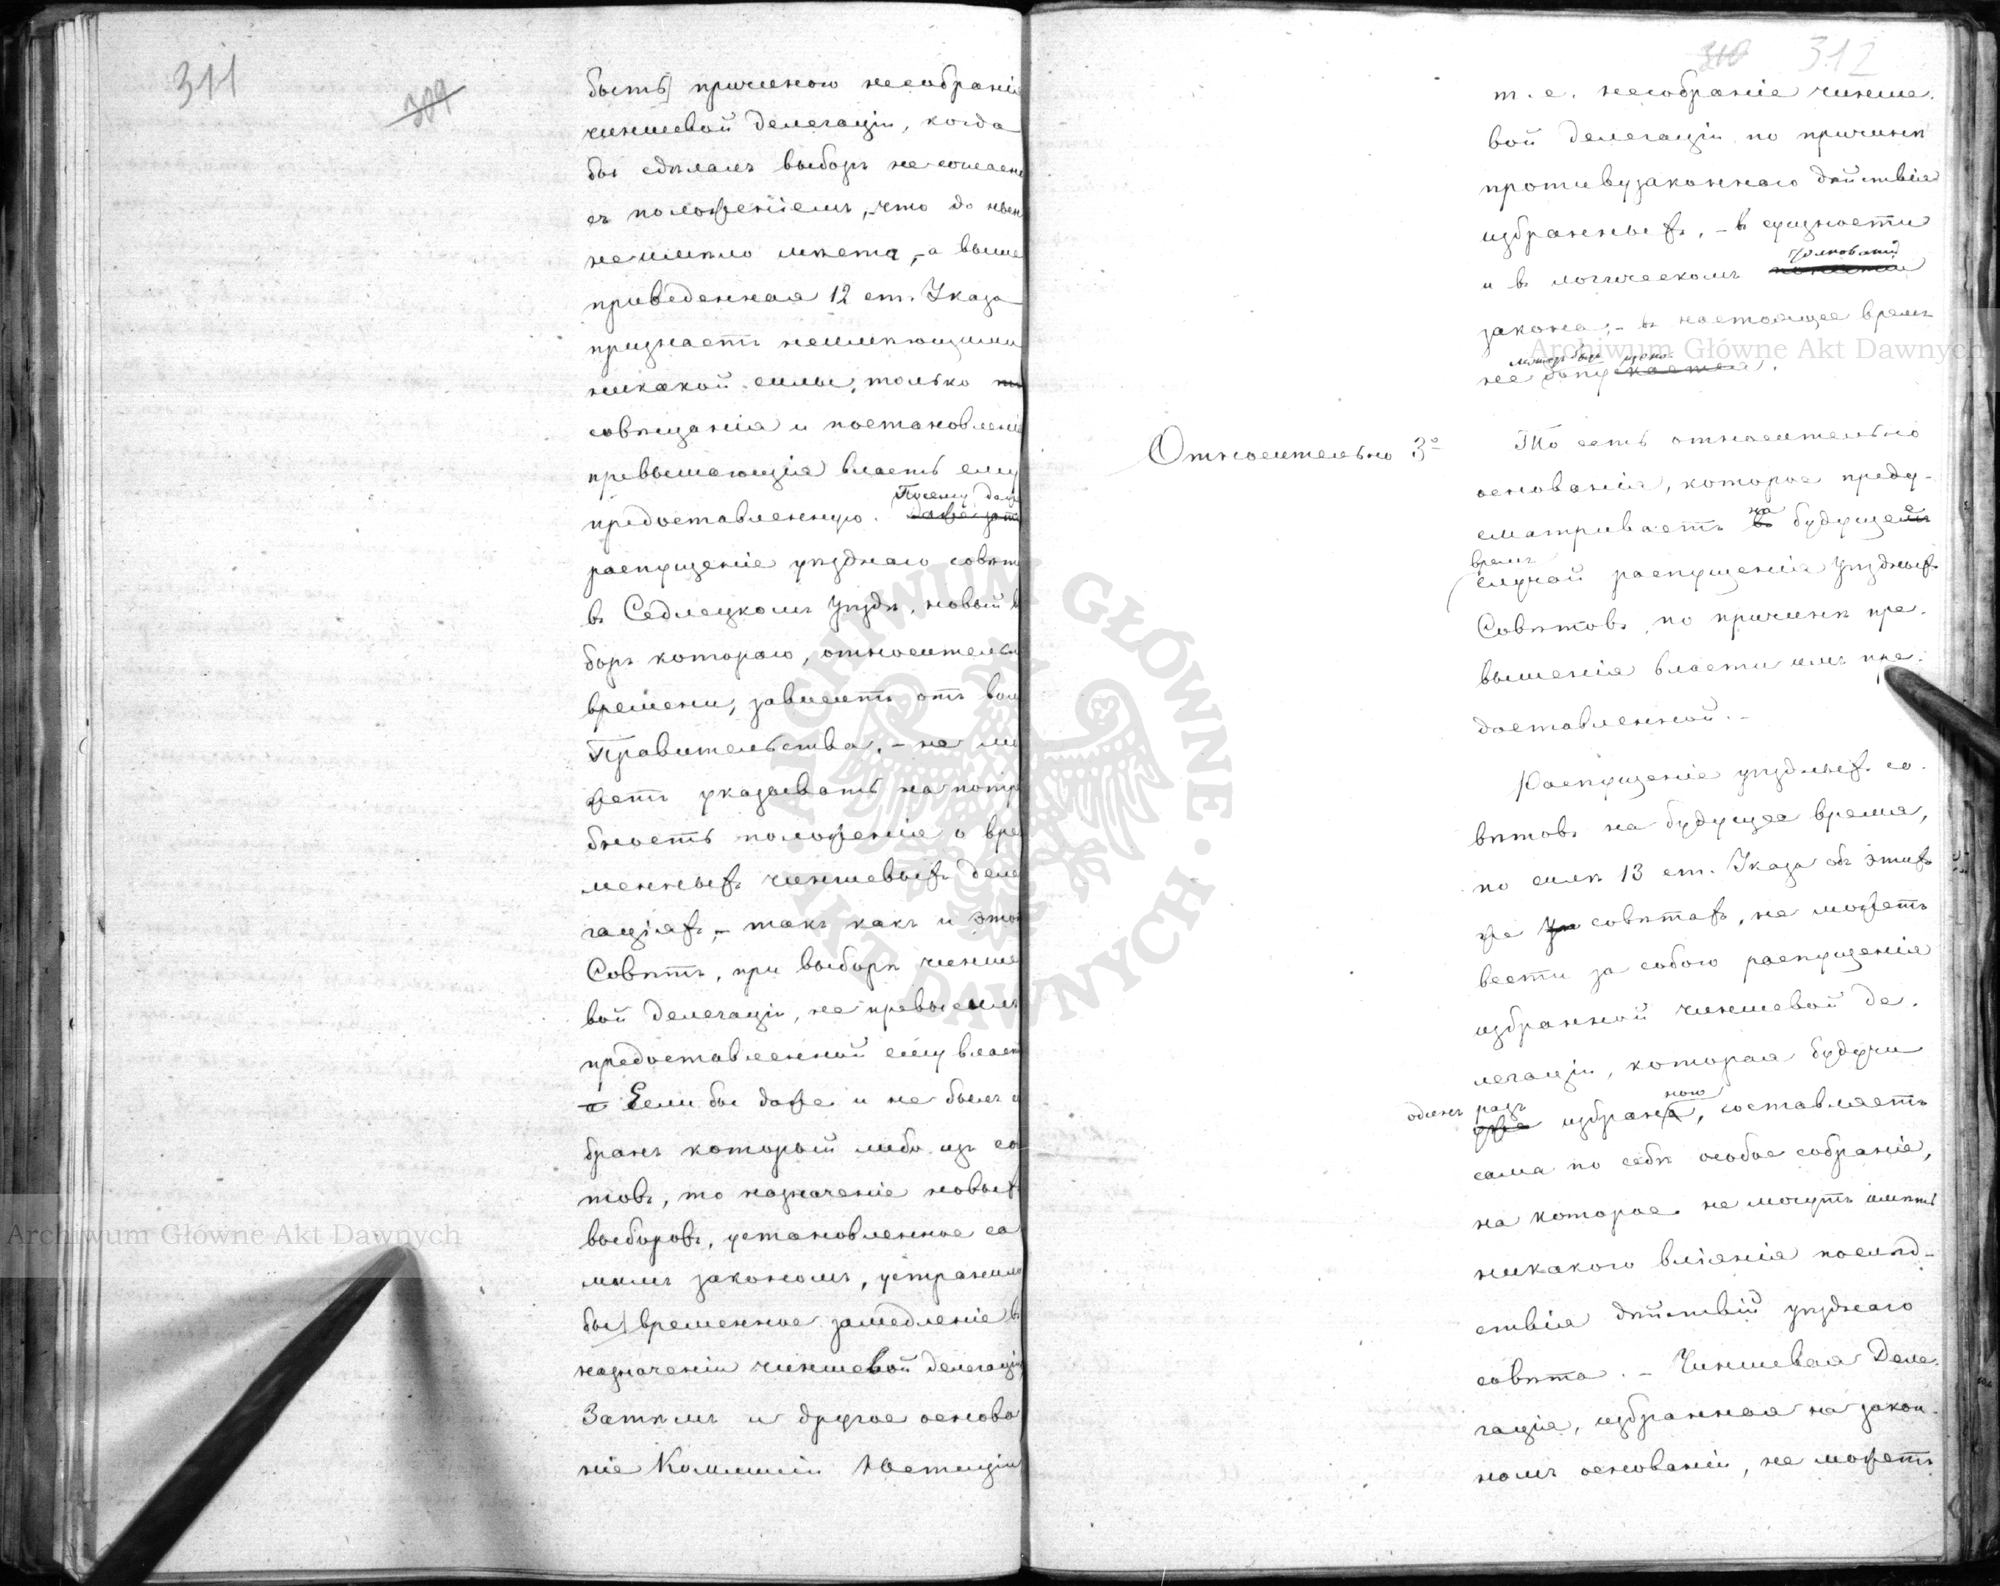 311
309
быть причиною несобранія
чиншевой делегаціи, когда
бы сдѣлалъ выборъ не согласно
съ положеніемъ, что до нын
не имѣло мѣста, а выше
приведенная 12 ст. Указа
признаетъ неимѣющими
никакой силы, только
совѣщанія и постановленія
превышающія власть ему
предоставленную. Посему
даже
распущеніе уѣзднаго совѣта
въ Седлецкомъ Уѣздѣ, новый вы
боръ котораго, относительно
времени, зависитъ отъ воли
Правительства, – не мо
жетъ указывать на потре
бность положенія о вре
менныхъ чиншевыхъ деле
гаціяхъ, – такъ какъ и этотъ
Совѣтъ, при выборѣ чинше
вой делегаціи, не превысилъ
предоставленной ему власти
а Если бы даже и не былъ и
бранъ который либо изъ со
товъ, то назначеніе новыхъ
выборовъ, установленное са
мимъ закономъ, устранило
бы временное замедленіе въ
назначеніи чиншевой делегаціи
Затѣмъ и другое основа
ніе Коммисіи Юстиціи
310 312
т. е. несобраніе чинше-
вой делегаціи по причинѣ
противузаконнаго дѣйствія
избранныхъ, – въ сущности
толкованіи
и въ логическомъ
закона, – въ настоящее время
можетъ быть
не допускается.
Относительно 3º
То есть относительно
основанія, которое преду-
сматриваетъ на будущее
время
случай распущенія Уѣздныхъ
Совѣтовъ, по причинѣ пре-
вышенія власти имъ пре-
доставленной. –
Распущеніе уѣздныхъ со-
вѣтовъ на будущее время,
по силѣ 13 ст. Указа объ этихъ
же совѣтахъ, не можетъ
вести за собою распущенія
избранной чиншевой де-
легаціи, которая будучи
одинъ разъ ною
уже избрана, составляетъ
сама по себѣ особое собраніе,
на которое не могутъ имѣть
никакого вліянія послѣд-
ствія дѣйствій уѣзднаго
совѣта. – Чиншевая Деле-
гація, избранная на закон-
номъ основаніи, не можетъ
Archiwum Główne Akt Dawnych
Archiwum Główne Akt Dawnych
ARCHIWUM GŁÓWNE · AKT DAWNYCH ·